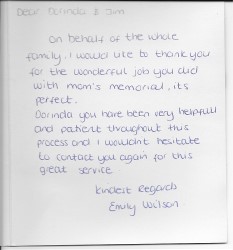 Dear Dorinda & Jim
On behalf of the whole
family, I would like to thank you
for the wonderful job you did
with mom's memorial, its
perfect.
Dorinda you have been very helpfull
and patient throughout this
process and I wouldnt hesitate
to contact you again for this
great service.
Kindest Regards
Emily Wilson